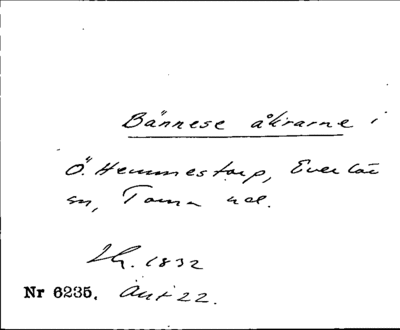 Bännese åkrarne i
Ö. Hemmestorp, Everlöv
sn, Torna hd.
1832
Nr 6235. Akt 22.